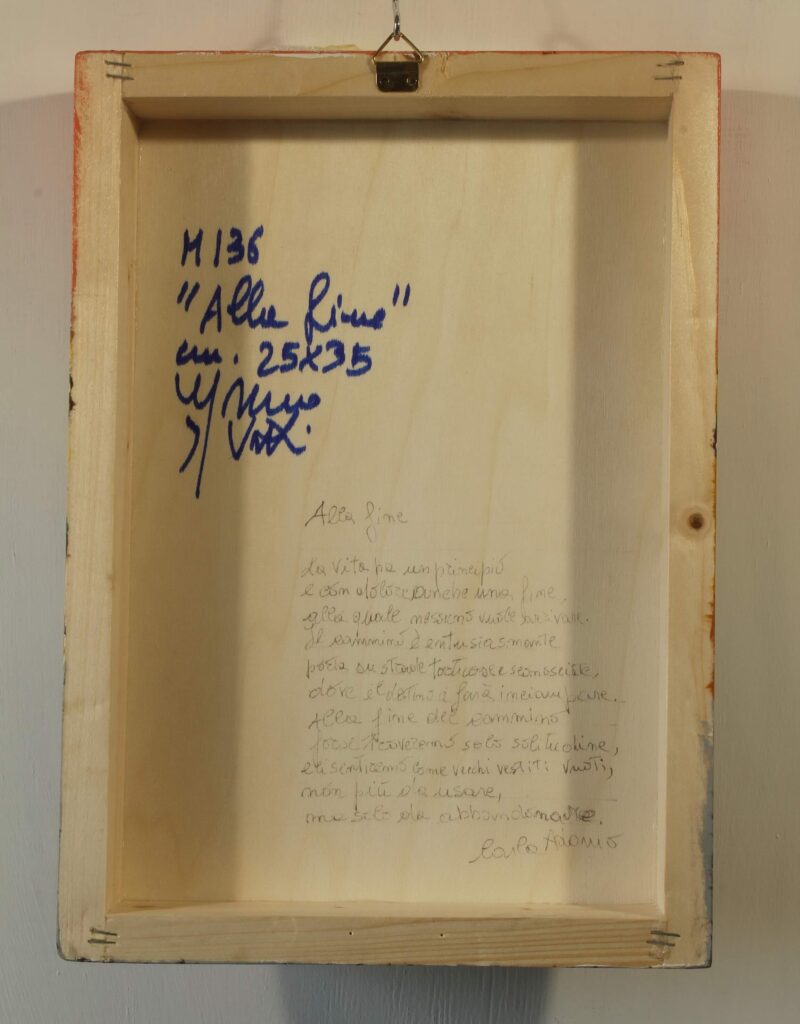 M 136
"Alla fine"
cm. 25x35
Alla fine
La vita ha un principio
e con dolore anche una fine,
alla quale nessuno vuole arrivare.
Il cammino è entusiasmante
porta su strade tortuose e sconosciute,
dove il destino ci farà inciampare.
Alla fine del cammino
forse troveremo solo solitudine,
e ci sentiremo come vecchi vestiti vuoti,
non più da usare,
ma solo da abbandonare.
Carlo Adamo